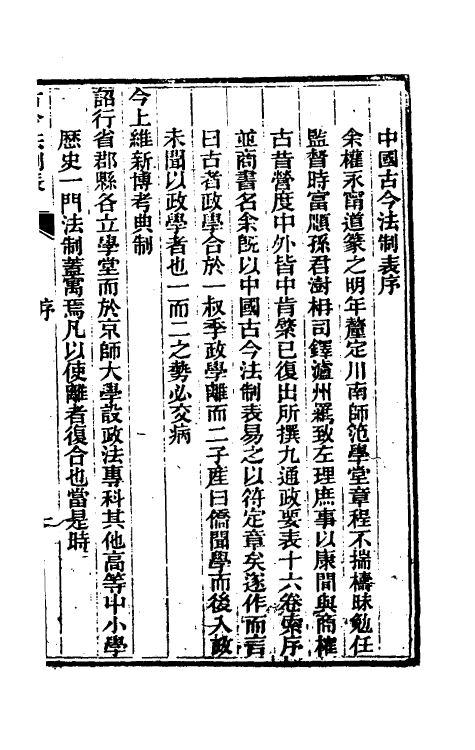 中國古今法制表序
余權永甯道篆之明年釐定川南師範學堂章程不揣檮昧勉任
監督時富順孫君澍枏司鐸瀘州羅致左理庶事以康間與商榷
古昔營度中外皆中肯綮已復出所撰九通政要表十六卷索序
並商書名余旣以中國古今法制表易之以符定章矣遂作而言
曰古者政學合於一叔季政學離而二子産曰僑聞學而後入政
未聞以政學者也一而二之勢必交病
今上維新博考典制
詔行省郡縣各立學堂而於京師大學設政法專科其他高等中小學
歷史一門法制蓋寓焉凡以使離者復合也當是時
古今法制表
序
一